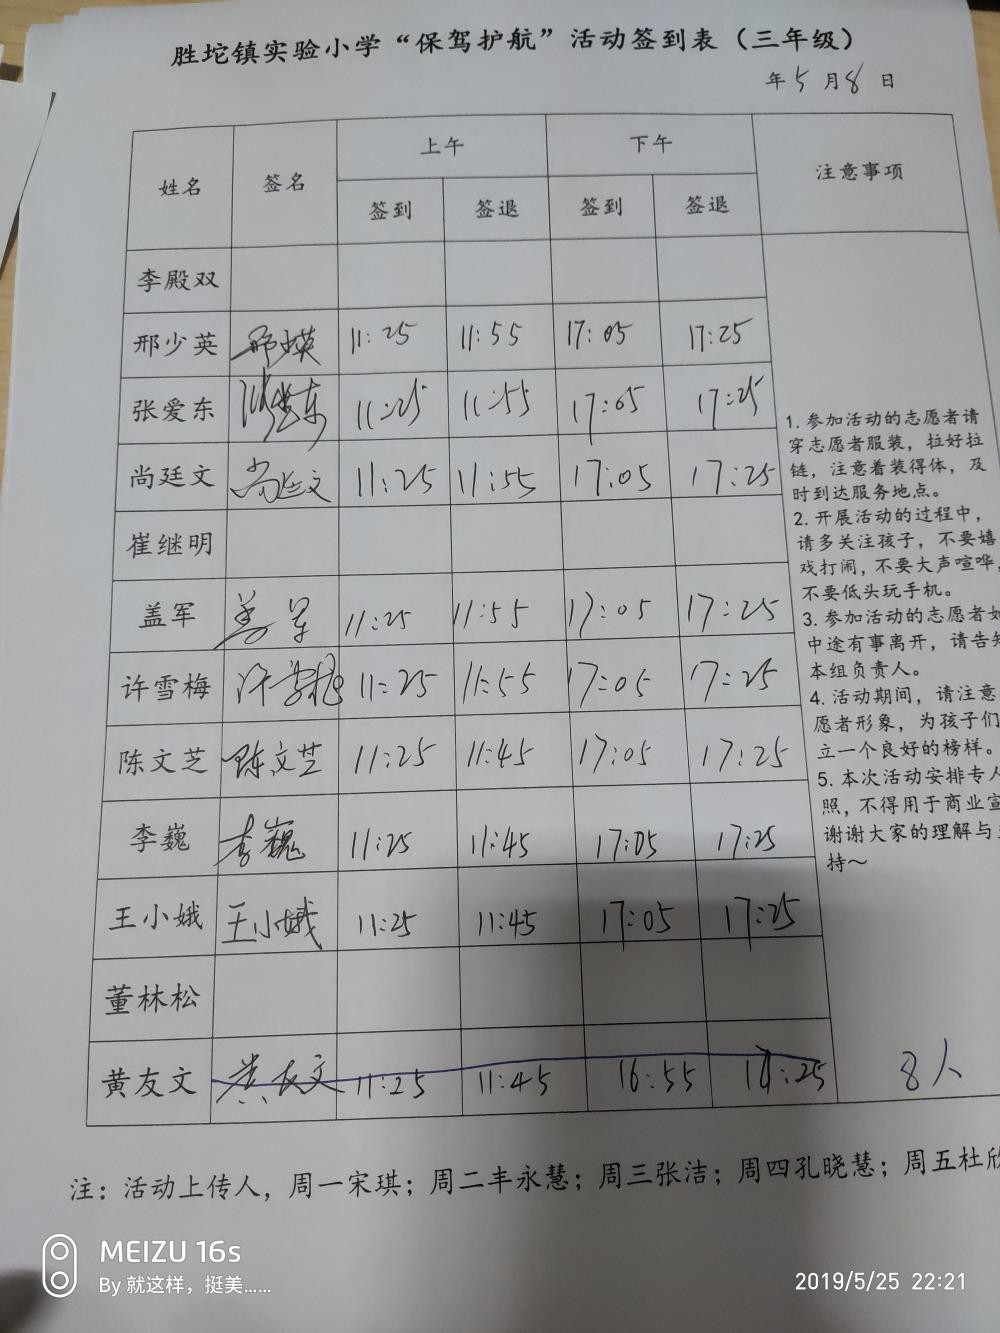 胜坨镇实验小学“保驾护航”活动签到表（三年级）
年 5 月 8 日
姓名 签名 上午 下午 注意事项
签到 签退 签到 签退
李殿双
邢少英 邢少英 11:25 11:55 17:05 17:25
张爱东 张爱东 11:25 11:55 17:05 17:25
尚廷文 尚廷文 11:25 11:55 17:05 17:25
崔继明
盖军 盖军 11:25 11:55 17:05 17:25
许雪梅 许雪梅 11:25 11:55 17:05 17:25
陈文芝 陈文芝 11:25 11:45 17:05 17:25
李巍 李巍 11:25 11:45 17:05 17:25
王小娥 王小娥 11:25 11:45 17:05 17:25
董林松
黄友文 黄友文 11:25 11:45 16:55 :25
1. 参加活动的志愿者请
穿志愿者服装，拉好拉
链，注意着装得体，及
时到达服务地点。
2. 开展活动的过程中，
请多关注孩子，不要嬉
戏打闹，不要大声喧哗，
不要低头玩手机。
3. 参加活动的志愿者如
中途有事离开，请告知
本组负责人。
4. 活动期间，请注意
愿者形象，为孩子们
立一个良好的榜样。
5. 本次活动安排专人
照，不得用于商业宣
谢谢大家的理解与支
持～
8人
注：活动上传人，周一宋琪；周二丰永慧；周三张洁；周四孔晓慧；周五杜欣
MEIZU 16s
By 就这样，挺美......
2019/5/25 22:21